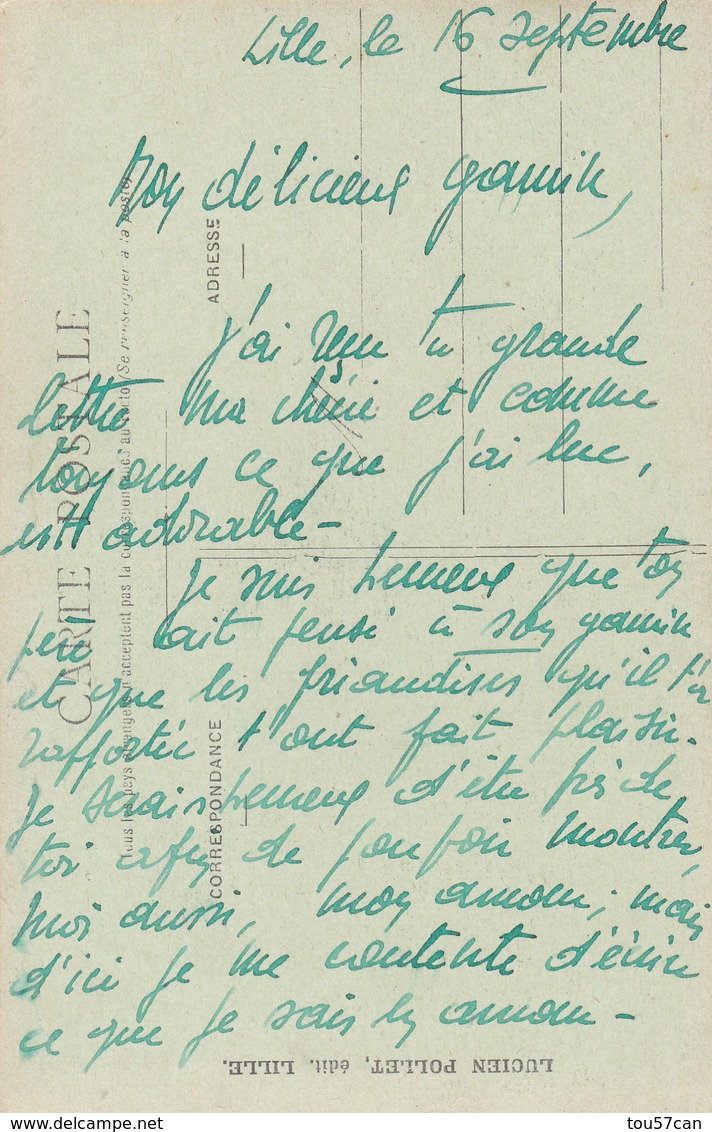 Lille, le 16 septembre
Mon délicieux gamin,
j'ai reçu ta grande
lettre ma chérie et comme
toujours ce que j'ai lu,
est adorable -
Je suis heureux que ton
père ait pensé à son gamin
et que les friandises qu'il t'a
rapportées t'ont fait plaisir.
Je serais heureux d'être près de
toi afin de pouvoir montrer,
moi aussi, mon amour; mais
d'ici je me contente d'écrire
ce que je sais en amour -
CARTE POSTALE
Tous les pays étrangers n'acceptent pas la correspondance au recto (Se renseigner à la poste)
CORRESPONDANCE
ADRESSE
LUCIEN POLLET, édit. LILLE.
tou57can